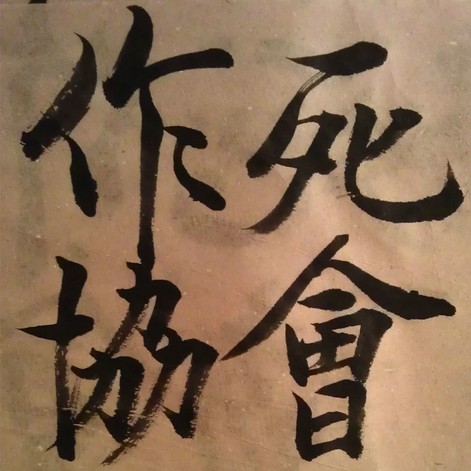 死會
作協